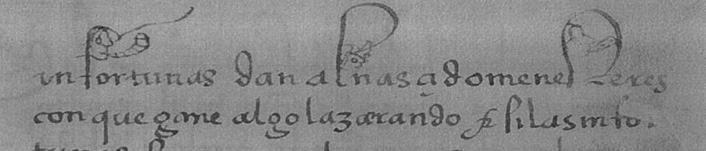 infortunas dan alnas qdo menesteres
con que gane algo lazarando & si las info.